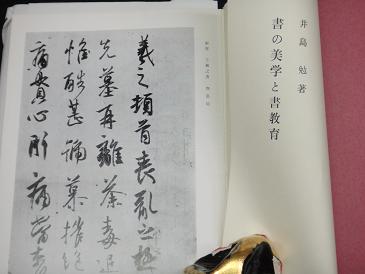 井島 勉 著
書の美学と書教育
羲之頓首喪亂之極
先墓再離荼毒追
惟酷甚號慕摧絶
痛貫心肝痛當奈